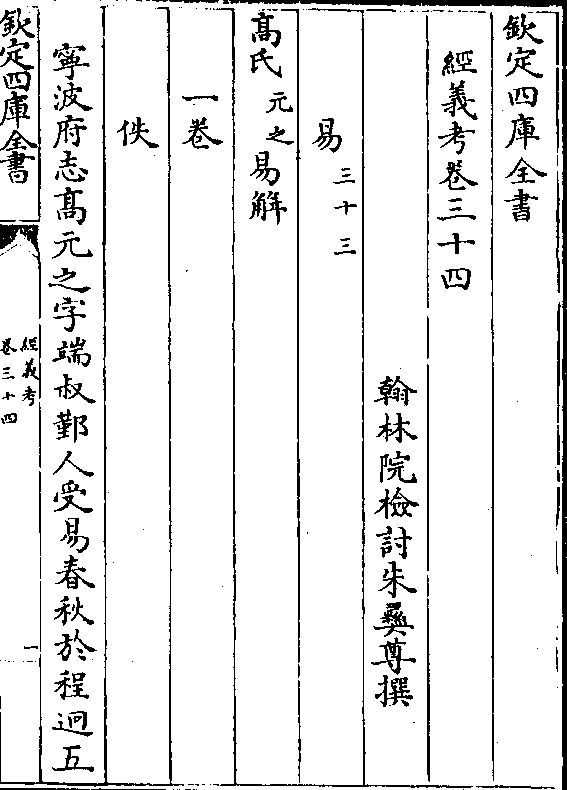 欽定四庫全書
經義考卷三十四
翰林院檢討朱彝尊撰
易三十三
髙氏元之易解
一卷
佚
寧波府志髙元之字端叔鄞人受易春秋於程迥五
欽定四庫全書
經義考
卷三十四
一